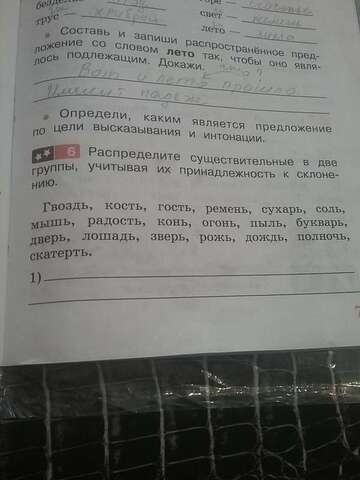 трус — храбрец свет —
лето — зима
• Составь и запиши распространённое пред-
ложение со словом лето так, чтобы оно явля-
лось подлежащим. Докажи.
Вот и лето прошло.
• Определи, каким является предложение
по цели высказывания и интонации.
6 Распределите существительные в две
группы, учитывая их принадлежность к склоне-
нию.
Гвоздь, кость, гость, ремень, сухарь, соль,
мышь, радость, конь, огонь, пыль, букварь,
дверь, лошадь, зверь, рожь, дождь, полночь,
скатерть.
1)